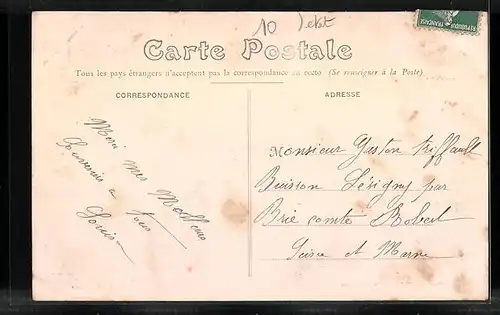 10
Carte Postale
Tous les pays étrangers n'acceptent pas la correspondance au recto (Se renseigner à la Poste)
CORRESPONDANCE
ADRESSE
Merci mes Meilleurs
Souvenirs a tous
Louis
Monsieur Gaston Triffault
Buisson Lésigny par
Brie comte Robert
Seine et Marne